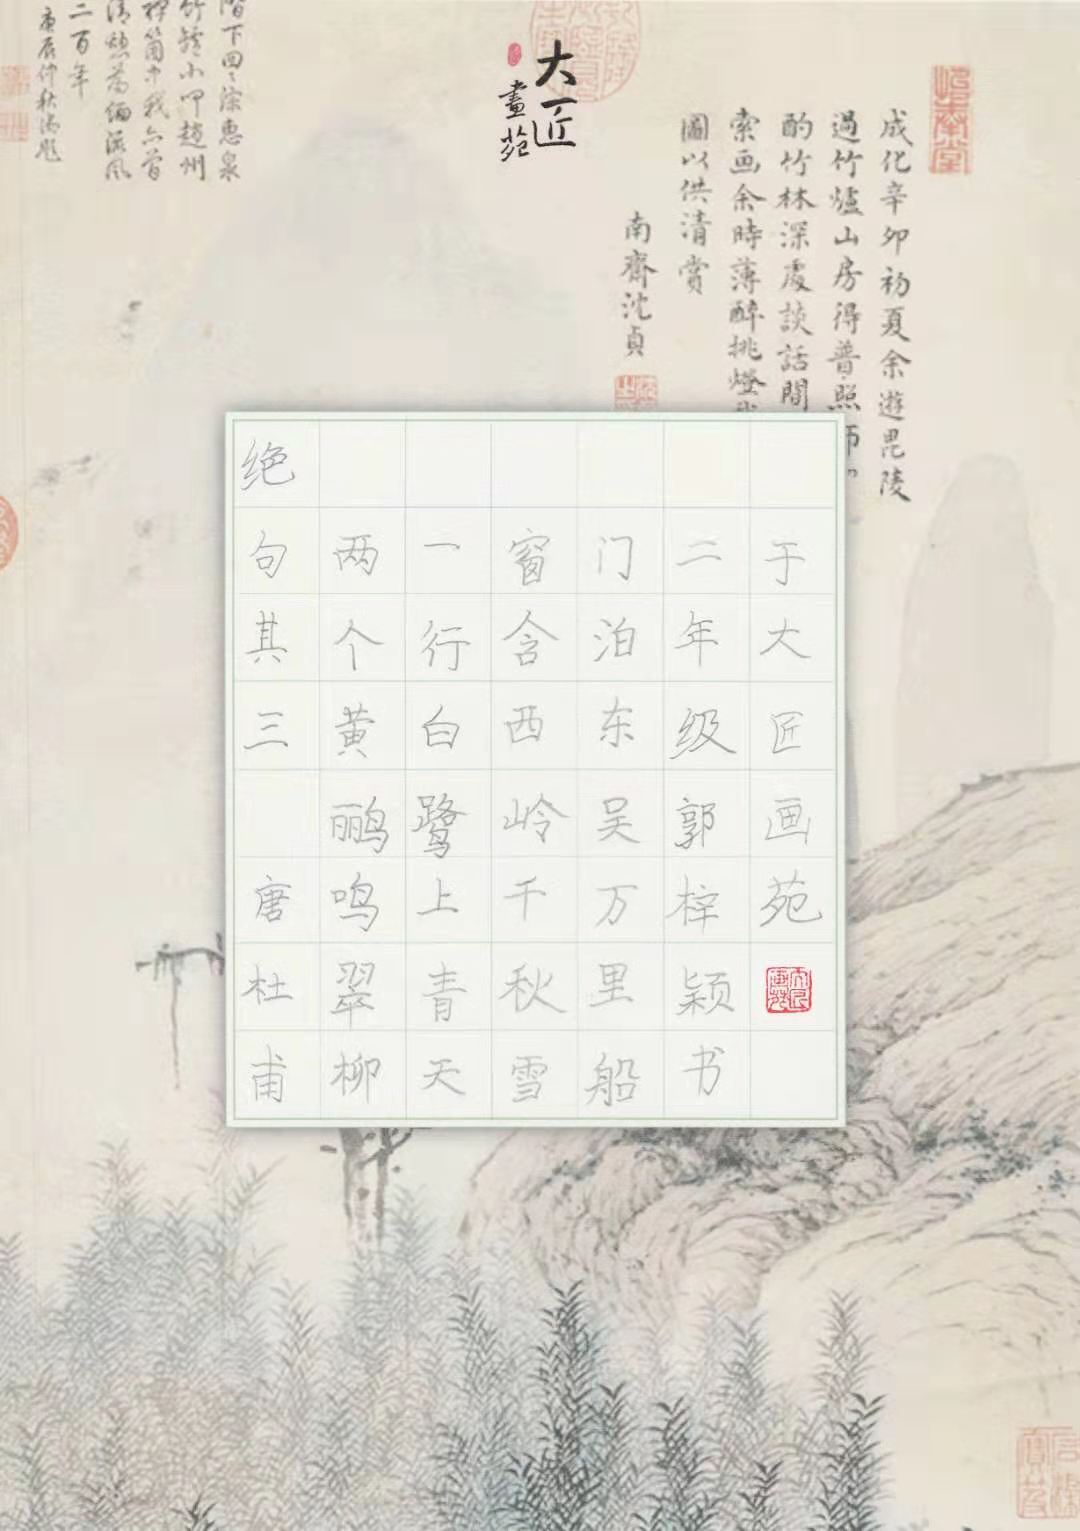 大匠
畫苑
成化辛卯初夏余遊毘陵
過竹爐山房得普照師
酌竹林深處談話間
索画余時薄醉挑燈
圖以供清賞
南齋沈貞
階下回之深惠泉
竹罏小叩趙州
禅箇中我亦曾
清憩为缅流風
二百年
庚辰仲秋御題
绝句其三 唐杜甫
两个黄鹂鸣翠柳
一行白鹭上青天
窗含西岭千秋雪
门泊东吴万里船
二年级郭梓颖书
于大匠画苑